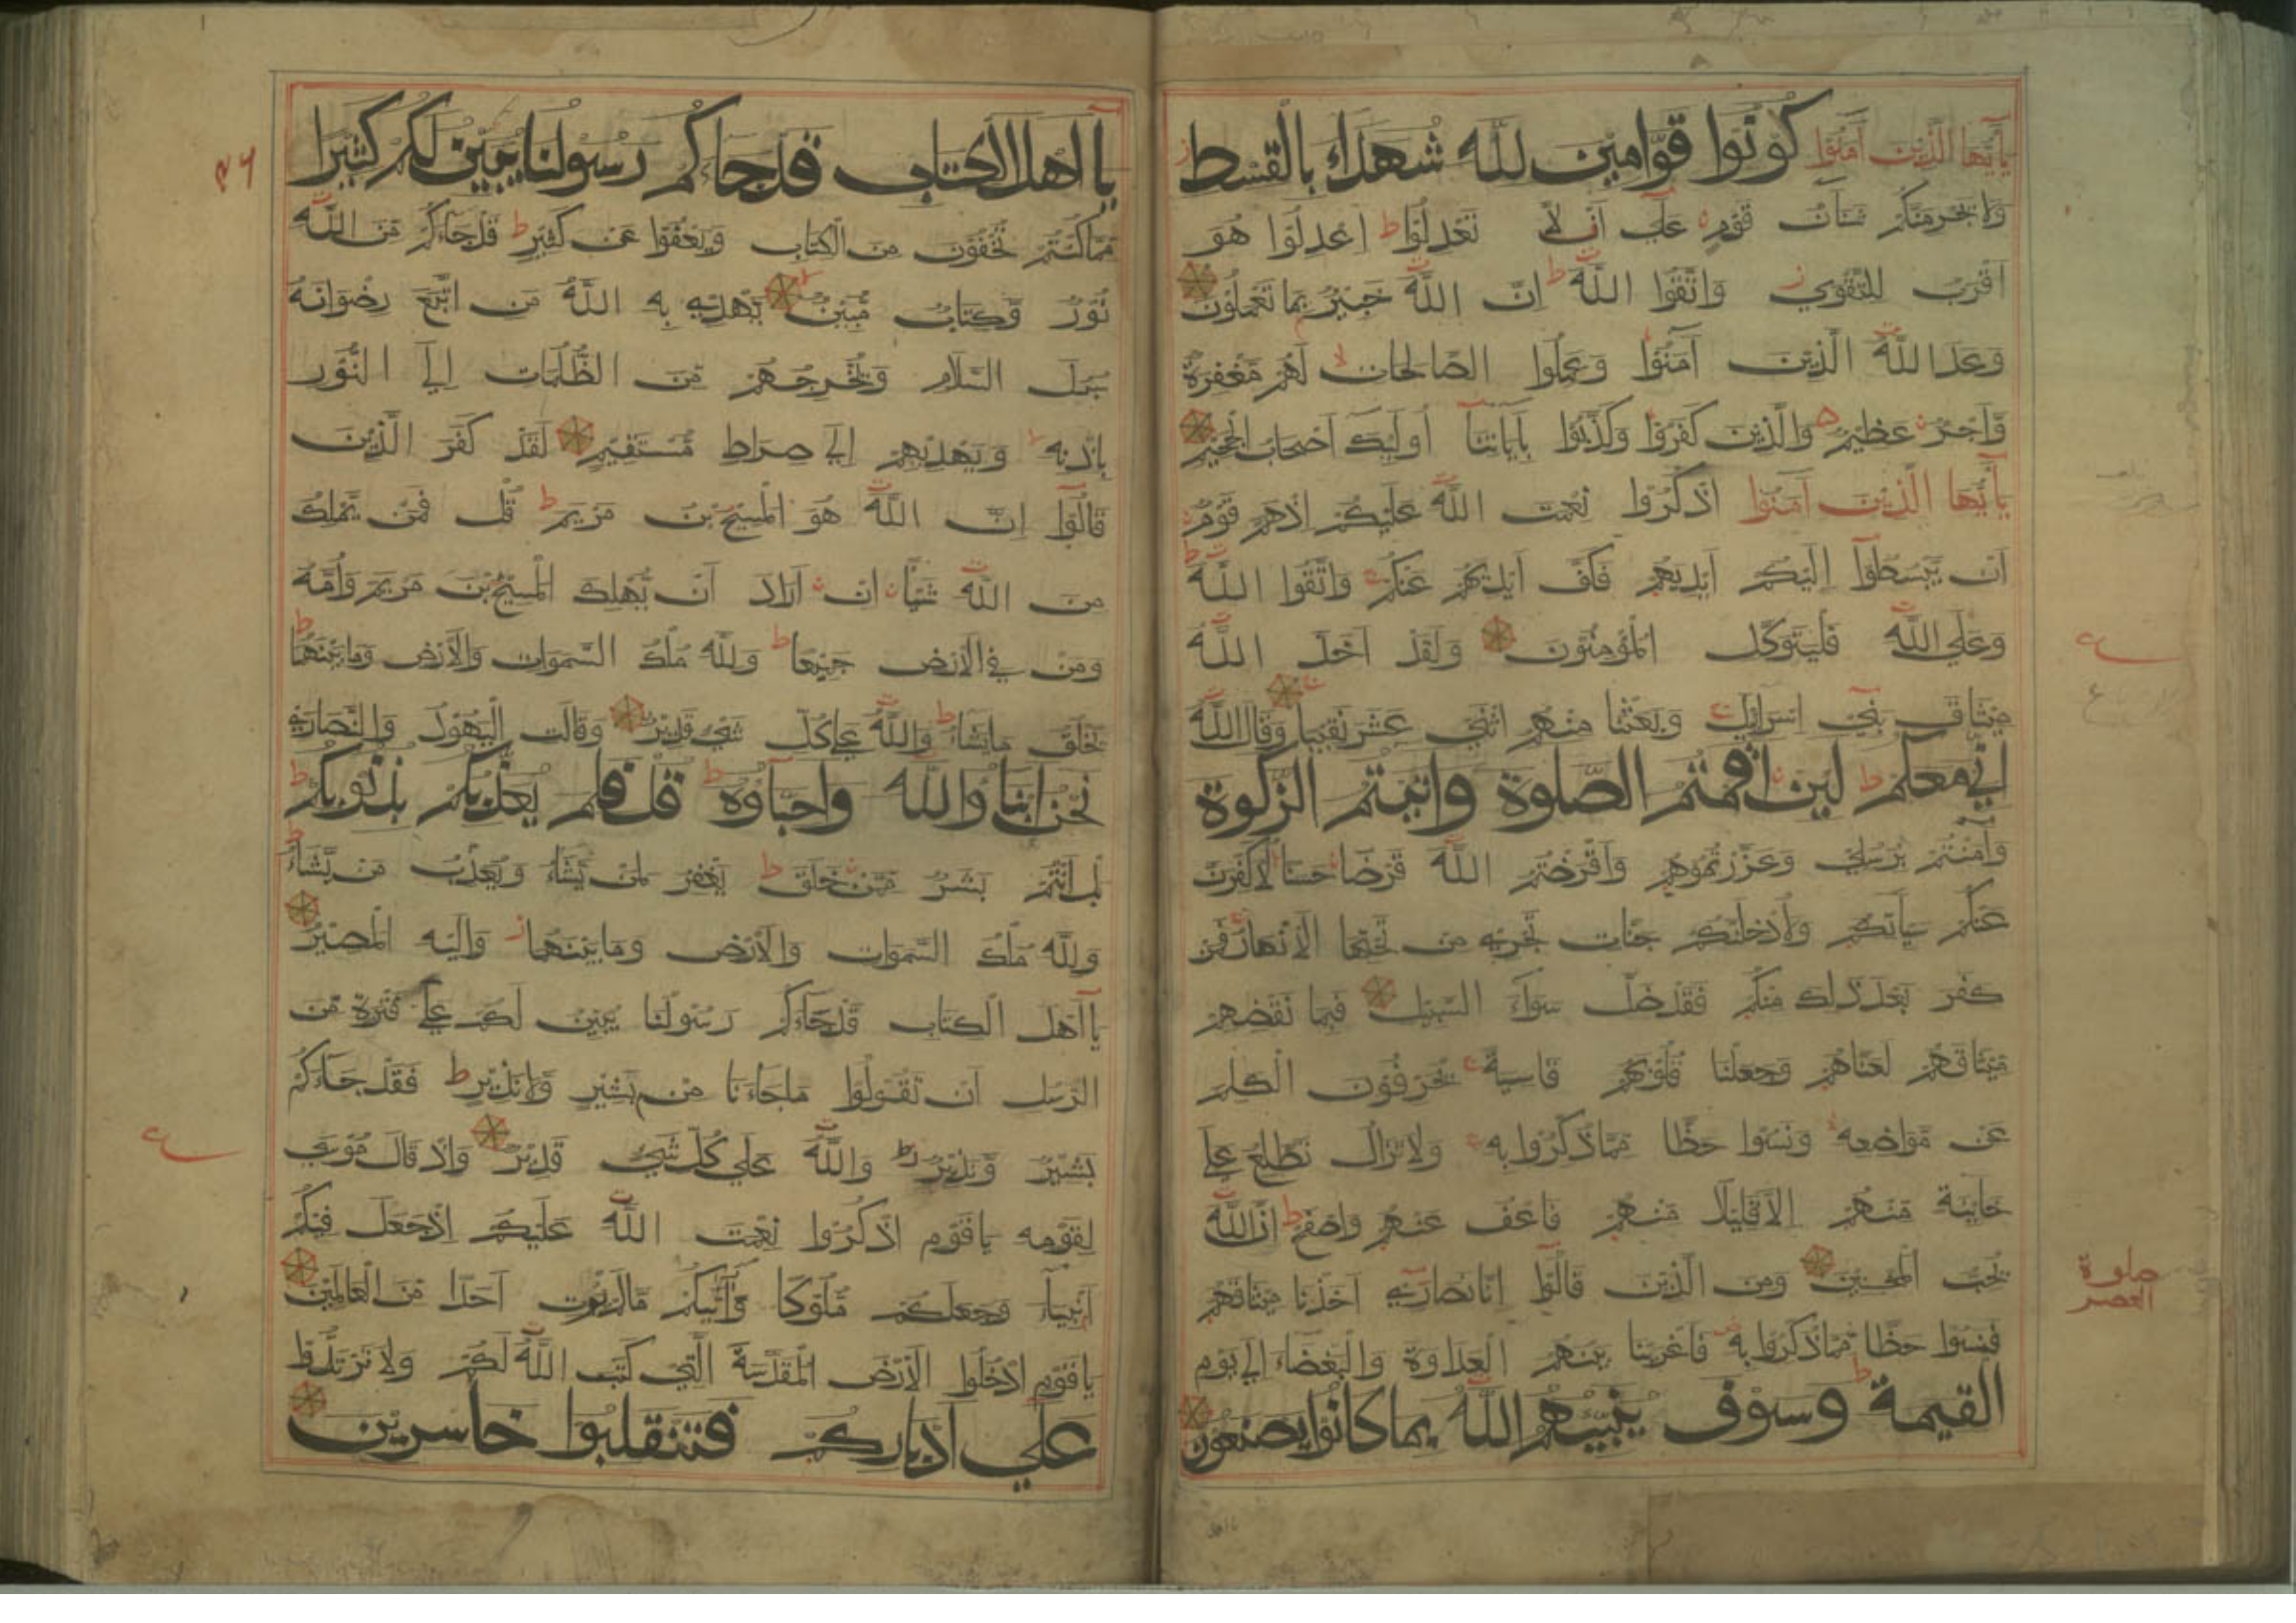 يا أيها الذين آمنوا كونوا قوامين لله شهداء بالقسط
ولا يجرمنكم شنآن قوم على أن لا تعدلوا ط اعدلوا هو
اقرب للتقوي ز واتقوا الله ط ان الله خبير بما تعملون
وعد الله الذين آمنوا وعملوا الصالحات لا لهم مغفرة
واجر عظيم ه والذين كفروا وكذبوا بآياتنا أوليك اصحاب الجحيم
يا أيها الذين آمنوا اذكروا نعمت الله عليكم اذهم قوم
ان يبسطوا اليكم ايديهم فكف ايديهم عنكم ج واتقوا الله ط
وعلي الله فليتوكل المؤمنون ولقد اخذ الله
ميثاق بني اسرائيل ج وبعثنا منهم اثني عشر نقيبا وقال الله
اني معكم ط لين اقمتم الصلوة واتيتم الزكوة
وآمنتم برسلي وعزرتموهم واقرضتم الله قرضا حسنا لاكفرن
عنكم سيآتكم ولأدخلنكم جنات تجري من تحتها الأنهار فمن
كفر بعد ذلك منكم فقد ضل سواء السبيل فبما نقضهم
ميثاقهم لعناهم وجعلنا قلوبهم قاسية ج يحرفون الكلم
عن مواضعه ونسوا حظا مما ذكروا به ج ولا تزال تطلع علي
خاينة منهم الا قليلا منهم فاعف عنهم واصفح ط ان الله
يحب المحسنين ومن الذين قالوا انا نصاري اخذنا ميثاقهم
فنسوا حظا مما ذكروا به فاغرينا بينهم العداوة والبغضاء الي يوم
القيمة ط وسوف ينبيهم الله بما كانوا يصنعون
ع
صلوة
العصر
يا اهل الكتاب قد جاءكم رسولنا يبين لكم كثيرا
مما كنتم تخفون من الكتاب ويعفوا عن كثير ط قد جاءكم من الله
نور وكتاب مبين لا يهدي به الله من اتبع رضوانه
سبل السلام ويخرجهم من الظلمات الي النور
باذنه ويهديهم الي صراط مستقيم لقد كفر الذين
قالوا ان الله هو المسيح بن مريم ط قل فمن يملك
من الله شيئا ان اراد ان يهلك المسيح بن مريم وأمه
ومن في الأرض جميعا ط ولله ملك السموات والأرض وما بينهما ط
يخلق ما يشاء ط والله علي كل شيء قدير وقالت اليهود والنصاري
نحن ابناؤا الله واحباؤه ط قل فلم يعذبكم بذنوبكم ط
بل انتم بشر ممن خلق ط يغفر لمن يشاء ويعذب من يشاء ط
ولله ملك السموات والأرض وما بينهما ز واليه المصير
يا اهل الكتاب قد جاءكم رسولنا يبين لكم علي فترة من
الرسل ان تقولوا ما جاءنا من بشير ولا نذير ط فقد جاءكم
بشير ونذير ط والله علي كل شيء قدير واذ قال موسي
لقومه يا قوم اذكروا نعمت الله عليكم اذ جعل فيكم
انبياء وجعلكم ملوكا وآتيكم ما لم يوت احدا من العالمين
يا قوم ادخلوا الأرض المقدسة التي كتب الله لكم ولا ترتدوا
علي ادباركم فتنقلبوا خاسرين
ع